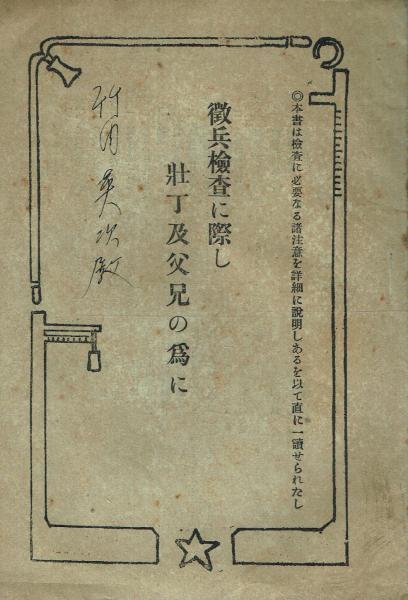 ◎本書は檢査に必要なる諸注意を詳細に說明しあるを以て直に一讀せられたし
徵兵檢査に際し
壯丁及父兄の爲に
竹内 次殿